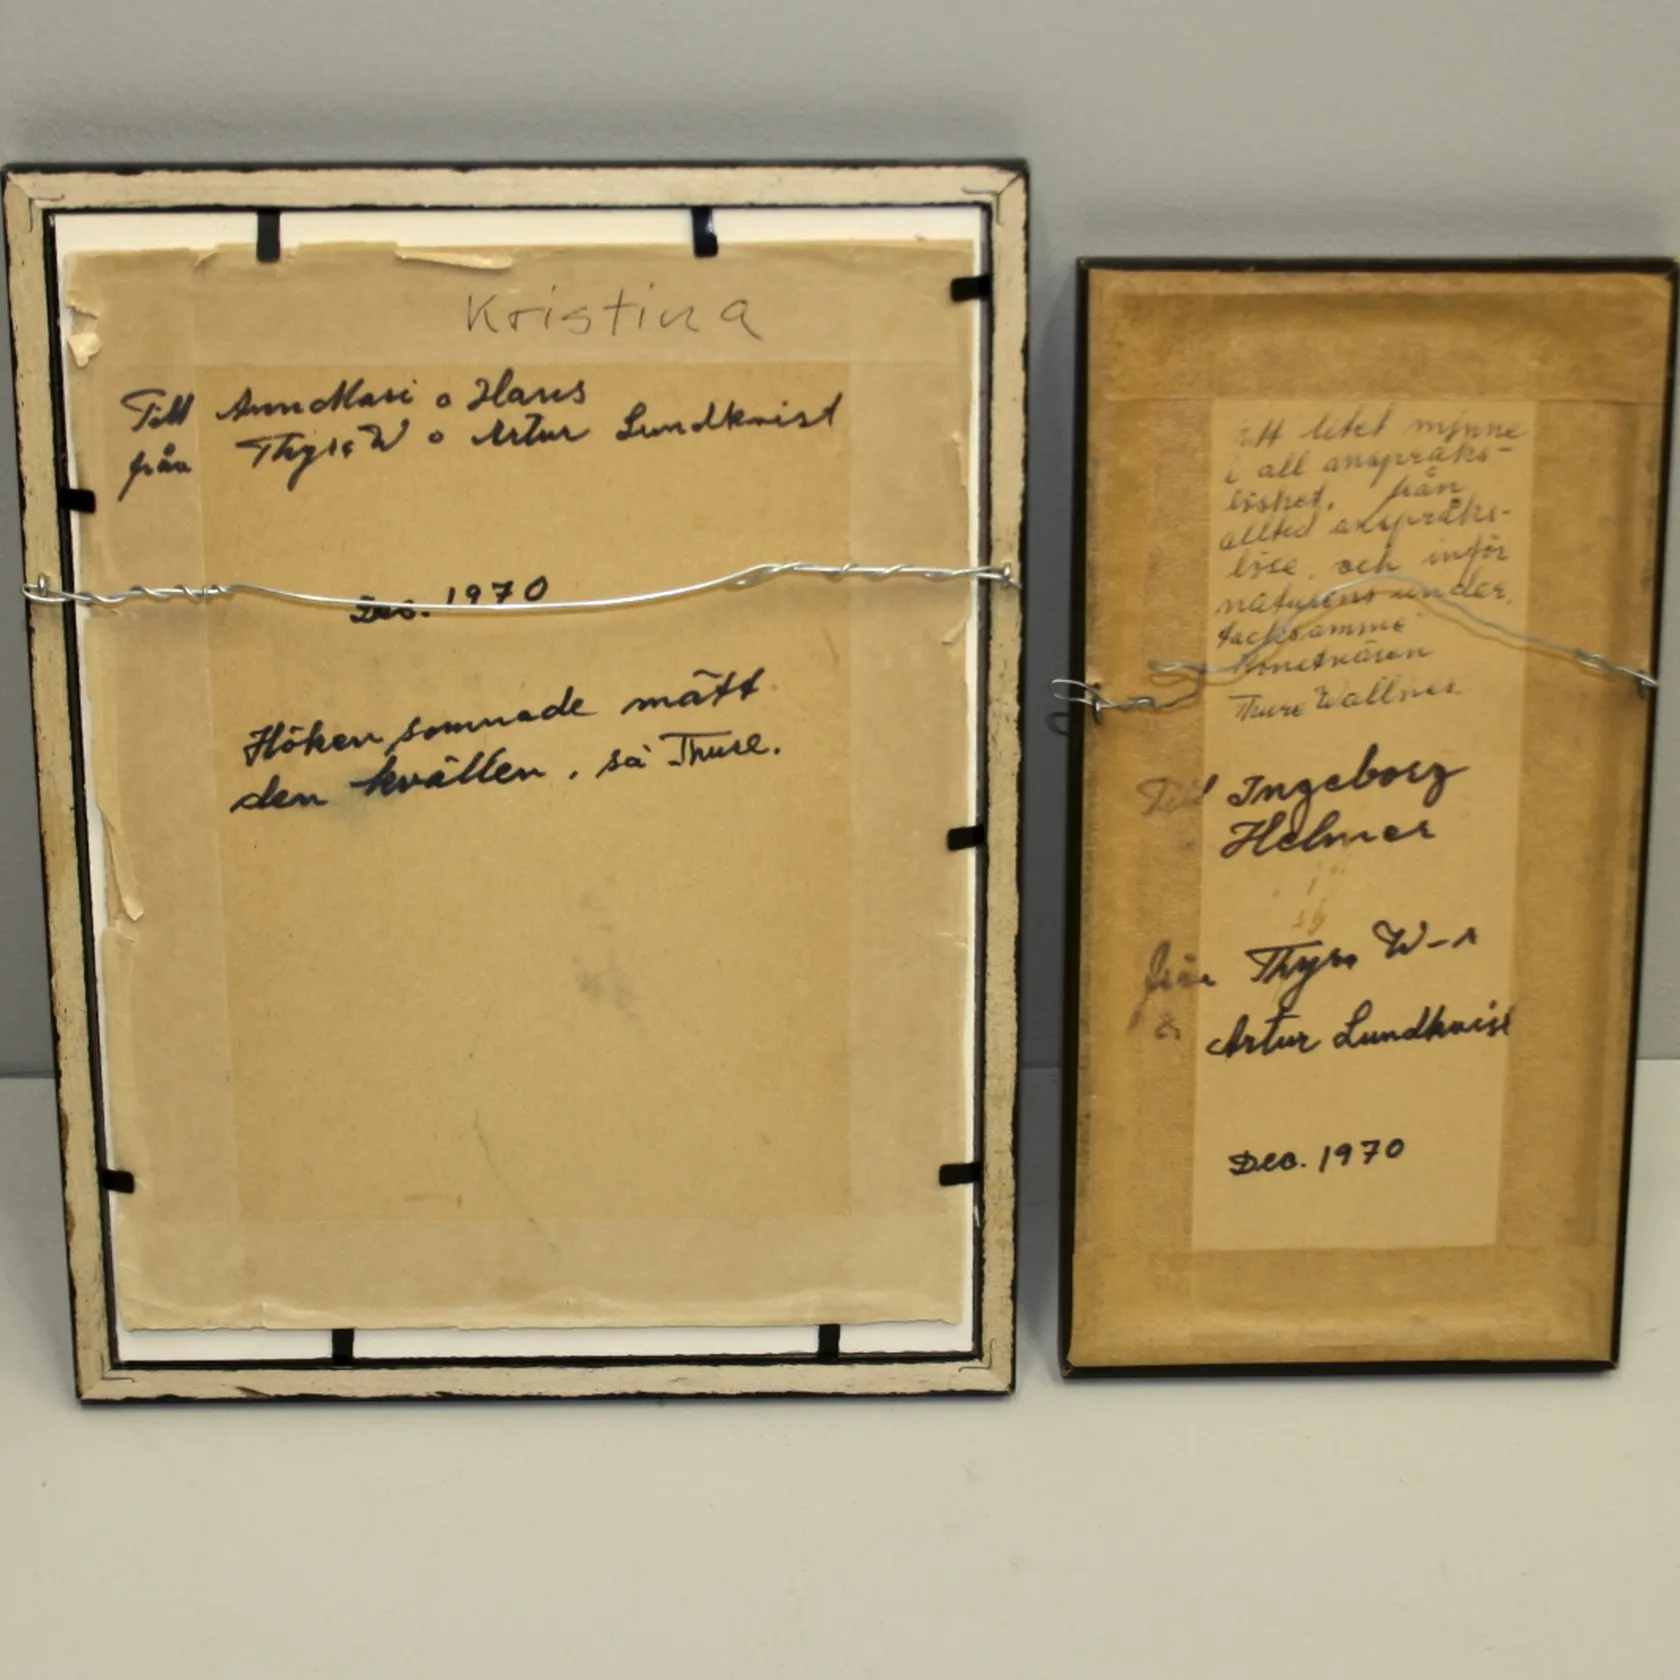 Kristina
Till AnnMari o Hans
från Thyra W o Artur Lundkvist
Dec. 1970
Höken somnade mätt
den kvällen, sa Thure.
ett litet minne
i all anspråks-
löshet, från
alltid anspråks-
löse, och inför
naturens under,
tacksamme
Konstnären
Thure Wallner
Till Ingeborg
Helmer
från Thyra W-r
& Artur Lundkvist
Dec. 1970